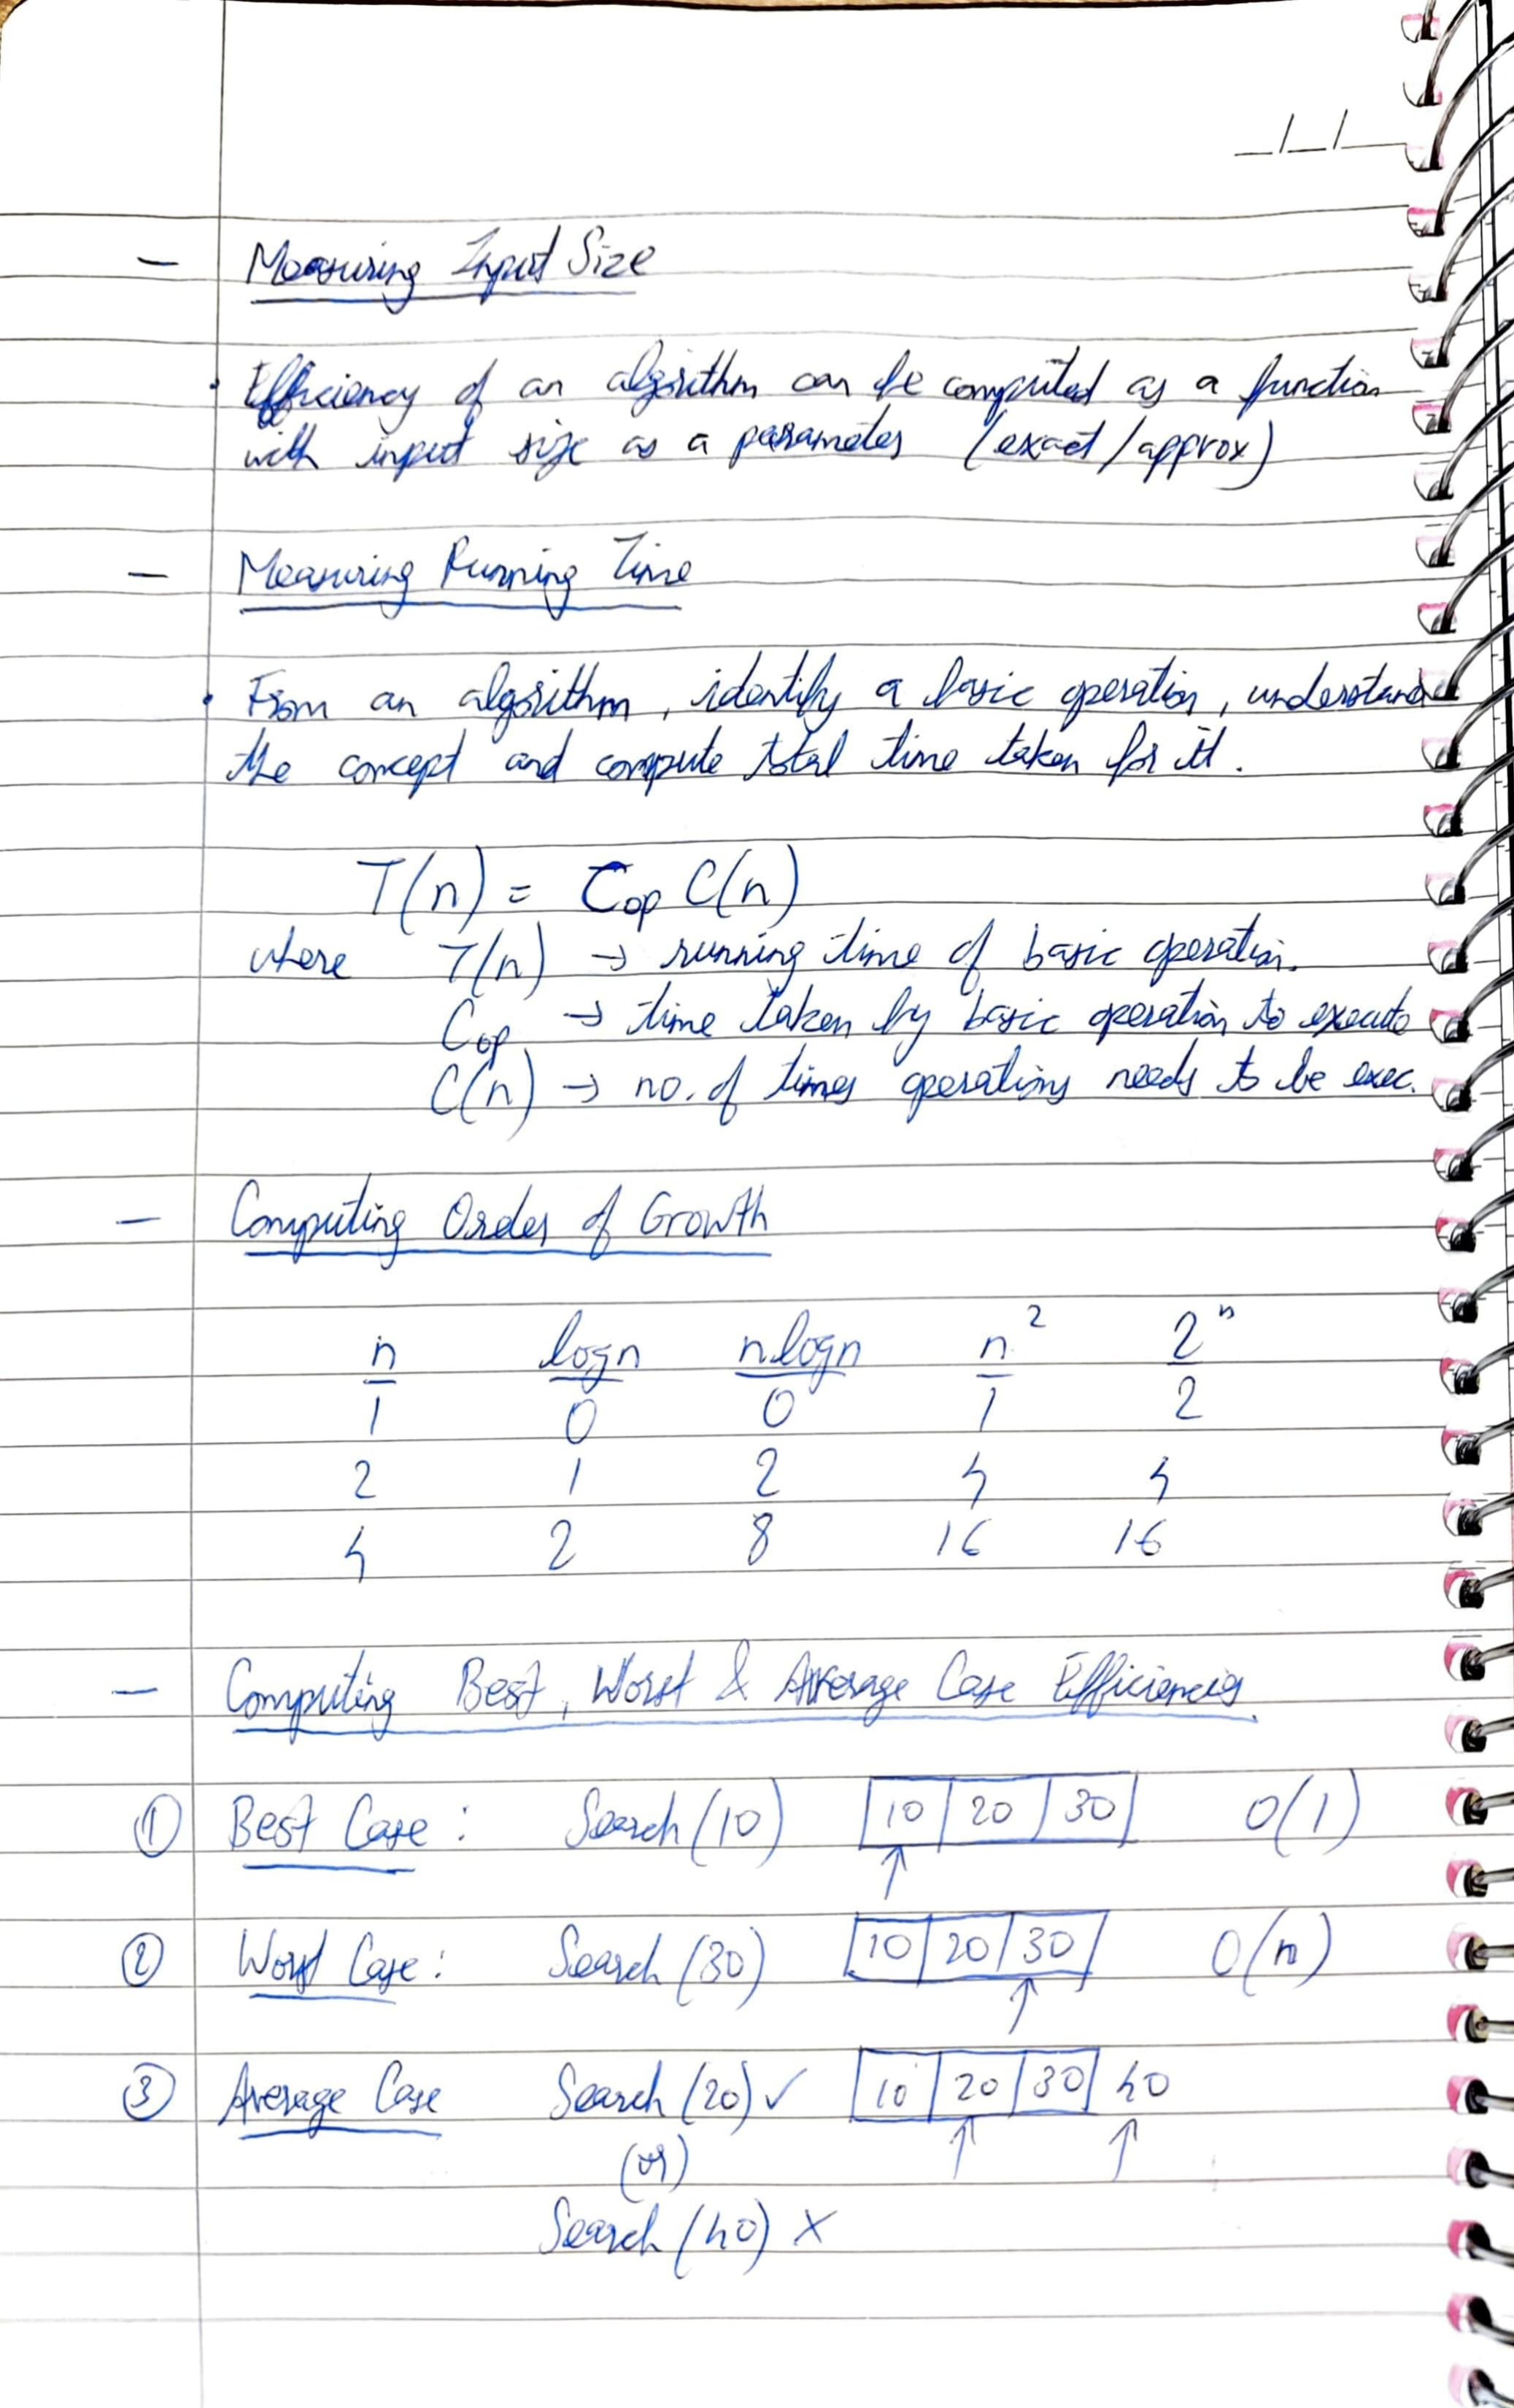 _/_/_
- Measuring Input Size
. Efficiency of an algorithm can be computed as a function
with input size as a parameter (exact/approx)
- Measuring Running Time
. From an algorithm, identify a basic operation, understand
the concept and compute total time taken for it.
T(n) = Cop C(n)
where T(n) → running time of basic operation.
Cop → time taken by basic operation to execute
C(n) → no. of times operations needs to be exec.
- Computing Order of Growth
n logn nlogn n² 2ⁿ
1 0 0 1 2
2 1 2 4 4
4 2 8 16 16
- Computing Best, Worst & Average Case Efficiencies.
① Best Case : Search (10) 10 20 30 O(1)
↑
② Worst Case : Search (30) 10 20 30 O(n)
↑
③ Average Case Search (20) ✓ 10 20 30 40
(or) ↑ ↑
Search (40) ×